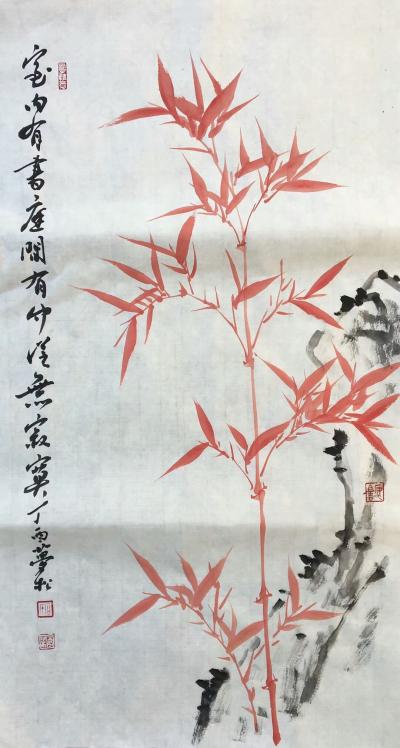 室内有書庭間有竹從無寂寞丁酉夢松